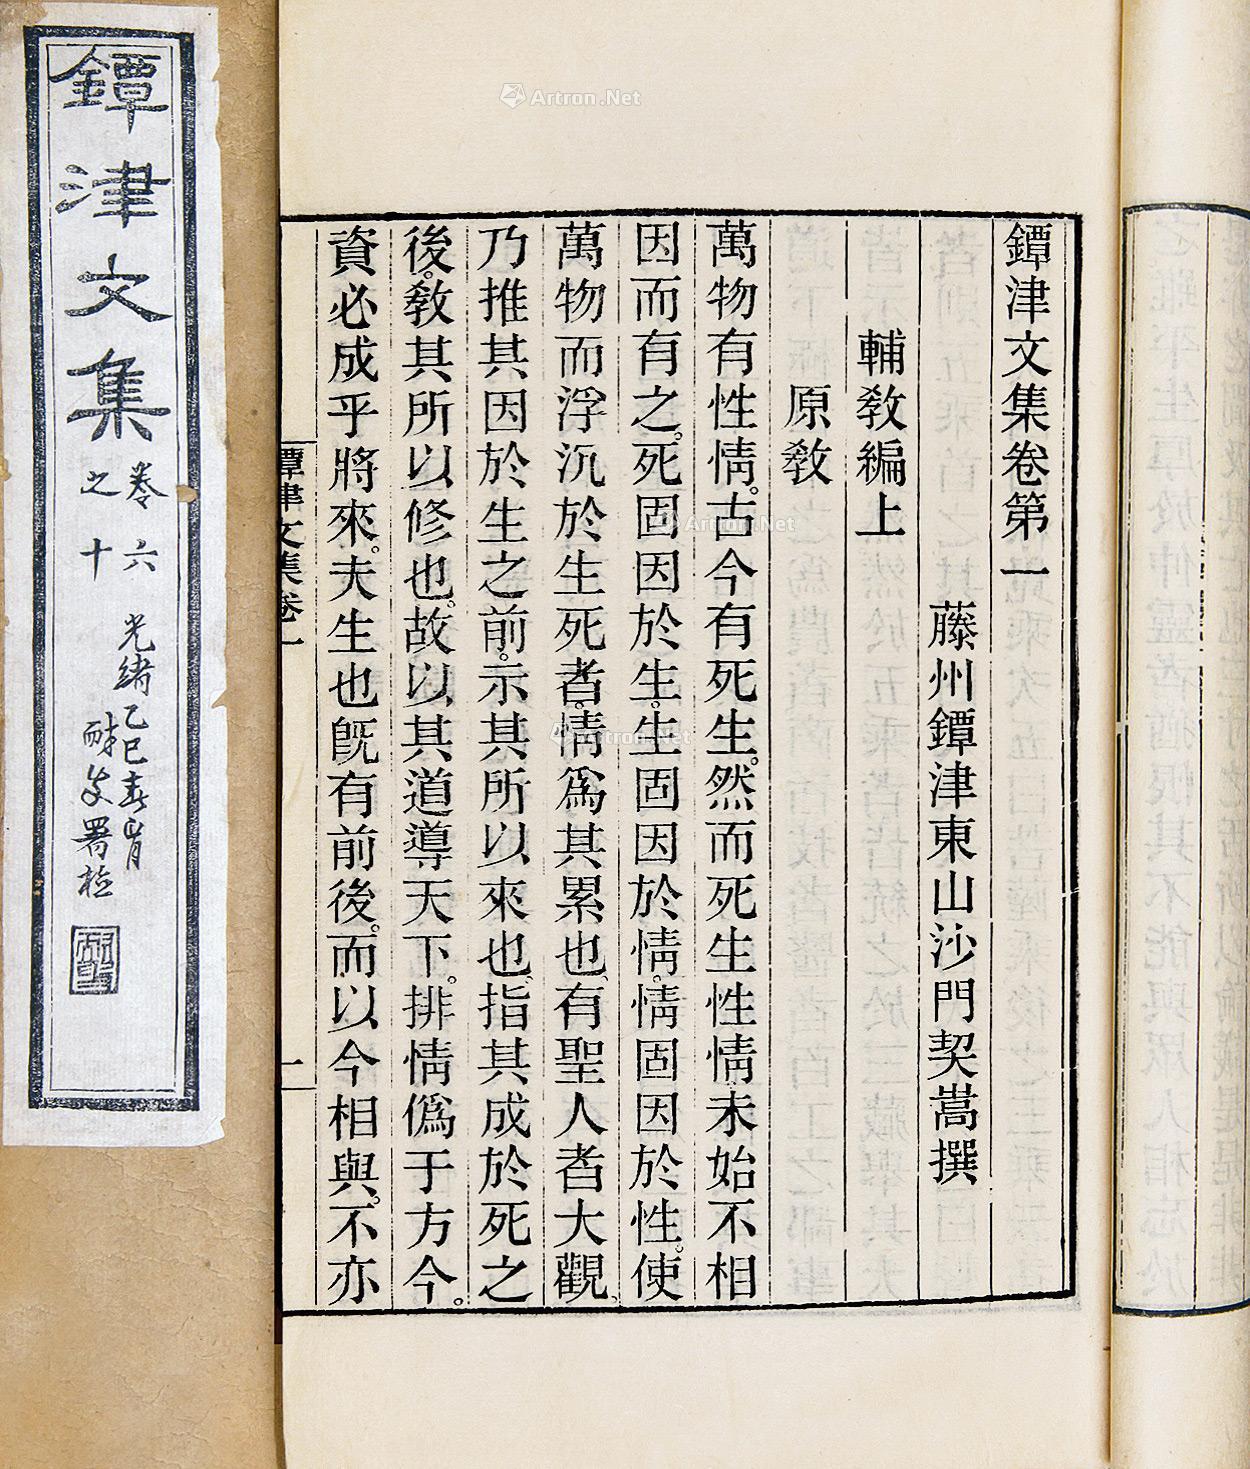 鐔津文集卷第一
藤州鐔津東山沙門契嵩撰
輔敎編上
原敎
萬物有性情。古今有死生。然而死生性情未始不相
因而有之。死固因於生。生固因於情。情固因於性。使
萬物而浮沉於生死者。情爲其累也、有聖人者大觀、
乃推其因於生之前。示其所以來也、指其成於死之
後。敎其所以修也。故以其道導天下。排情僞于方今。
資必成乎將來。夫生也旣有前後。而以今相與。不亦
鐔津文集卷一
一
鐔津文集
卷六
之十
光緒乙巳春月
署檢
Artron.Net
Artron.Net
Artron.Net